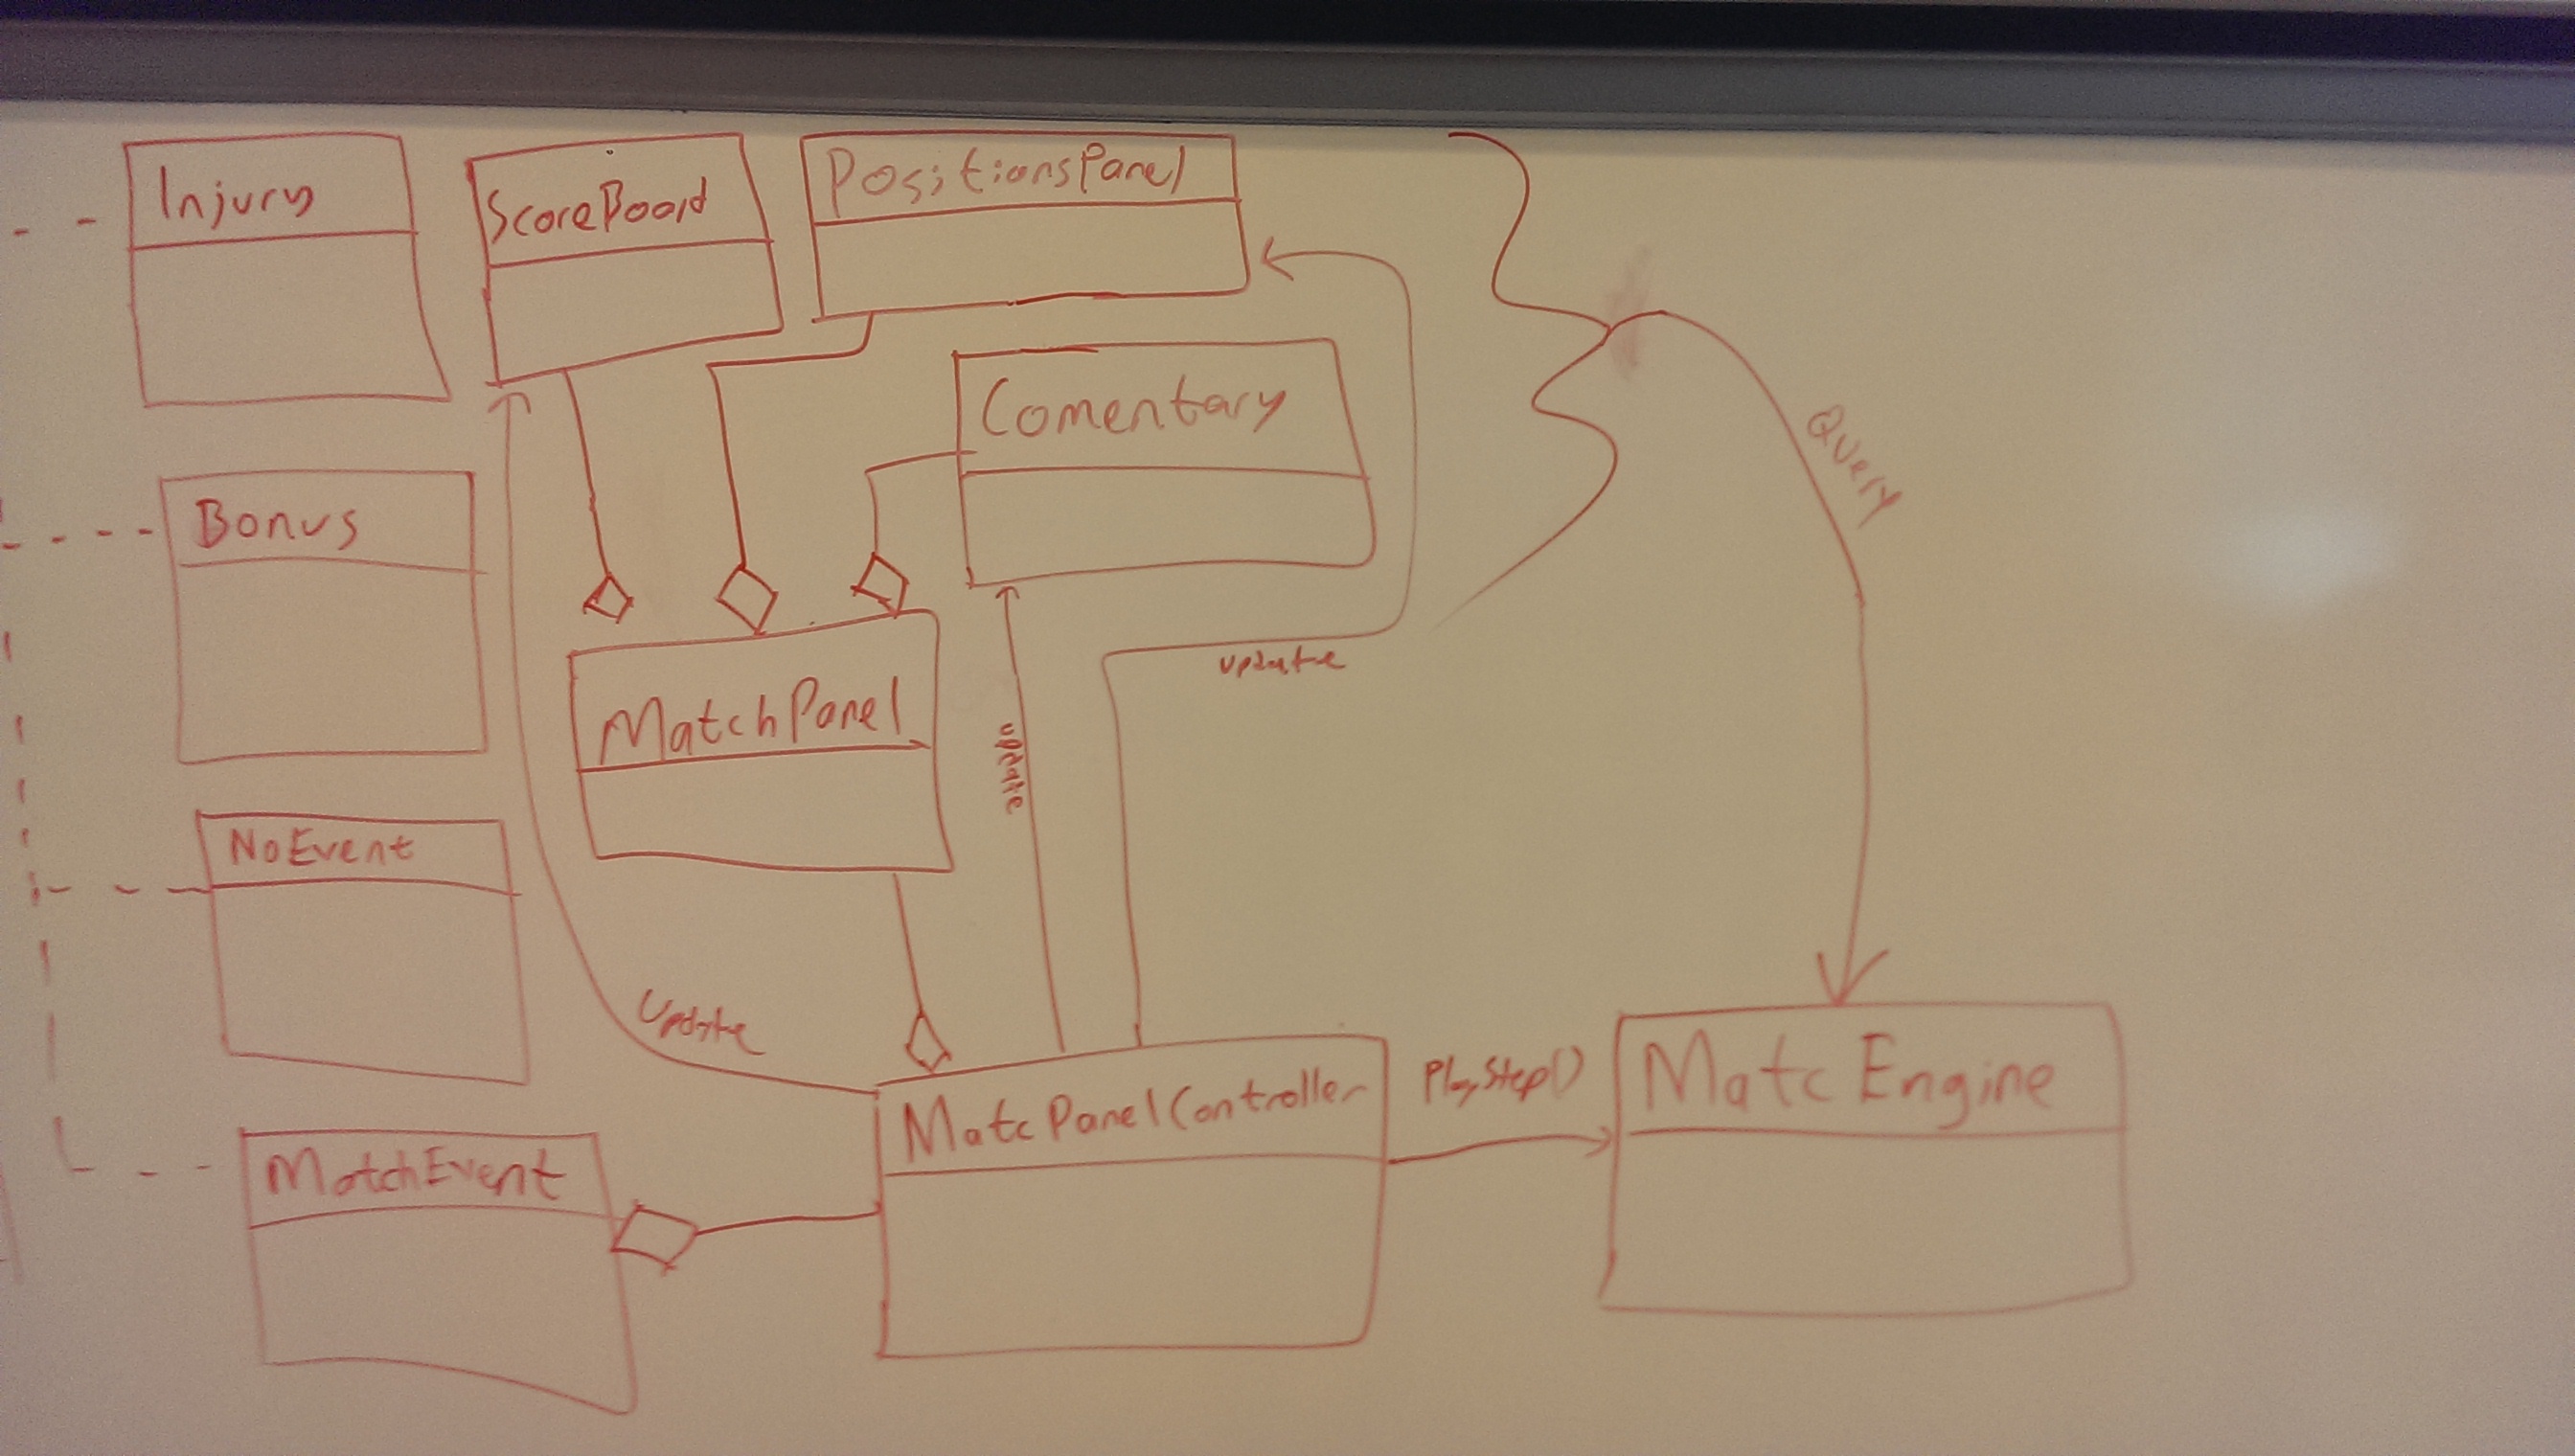 Injury
ScoreBoard
PositionsPanel
Comentary
Query
Bonus
update
MatchPanel
update
NoEvent
Update
MatcPanelController
PlayStep()
MatcEngine
MatchEvent